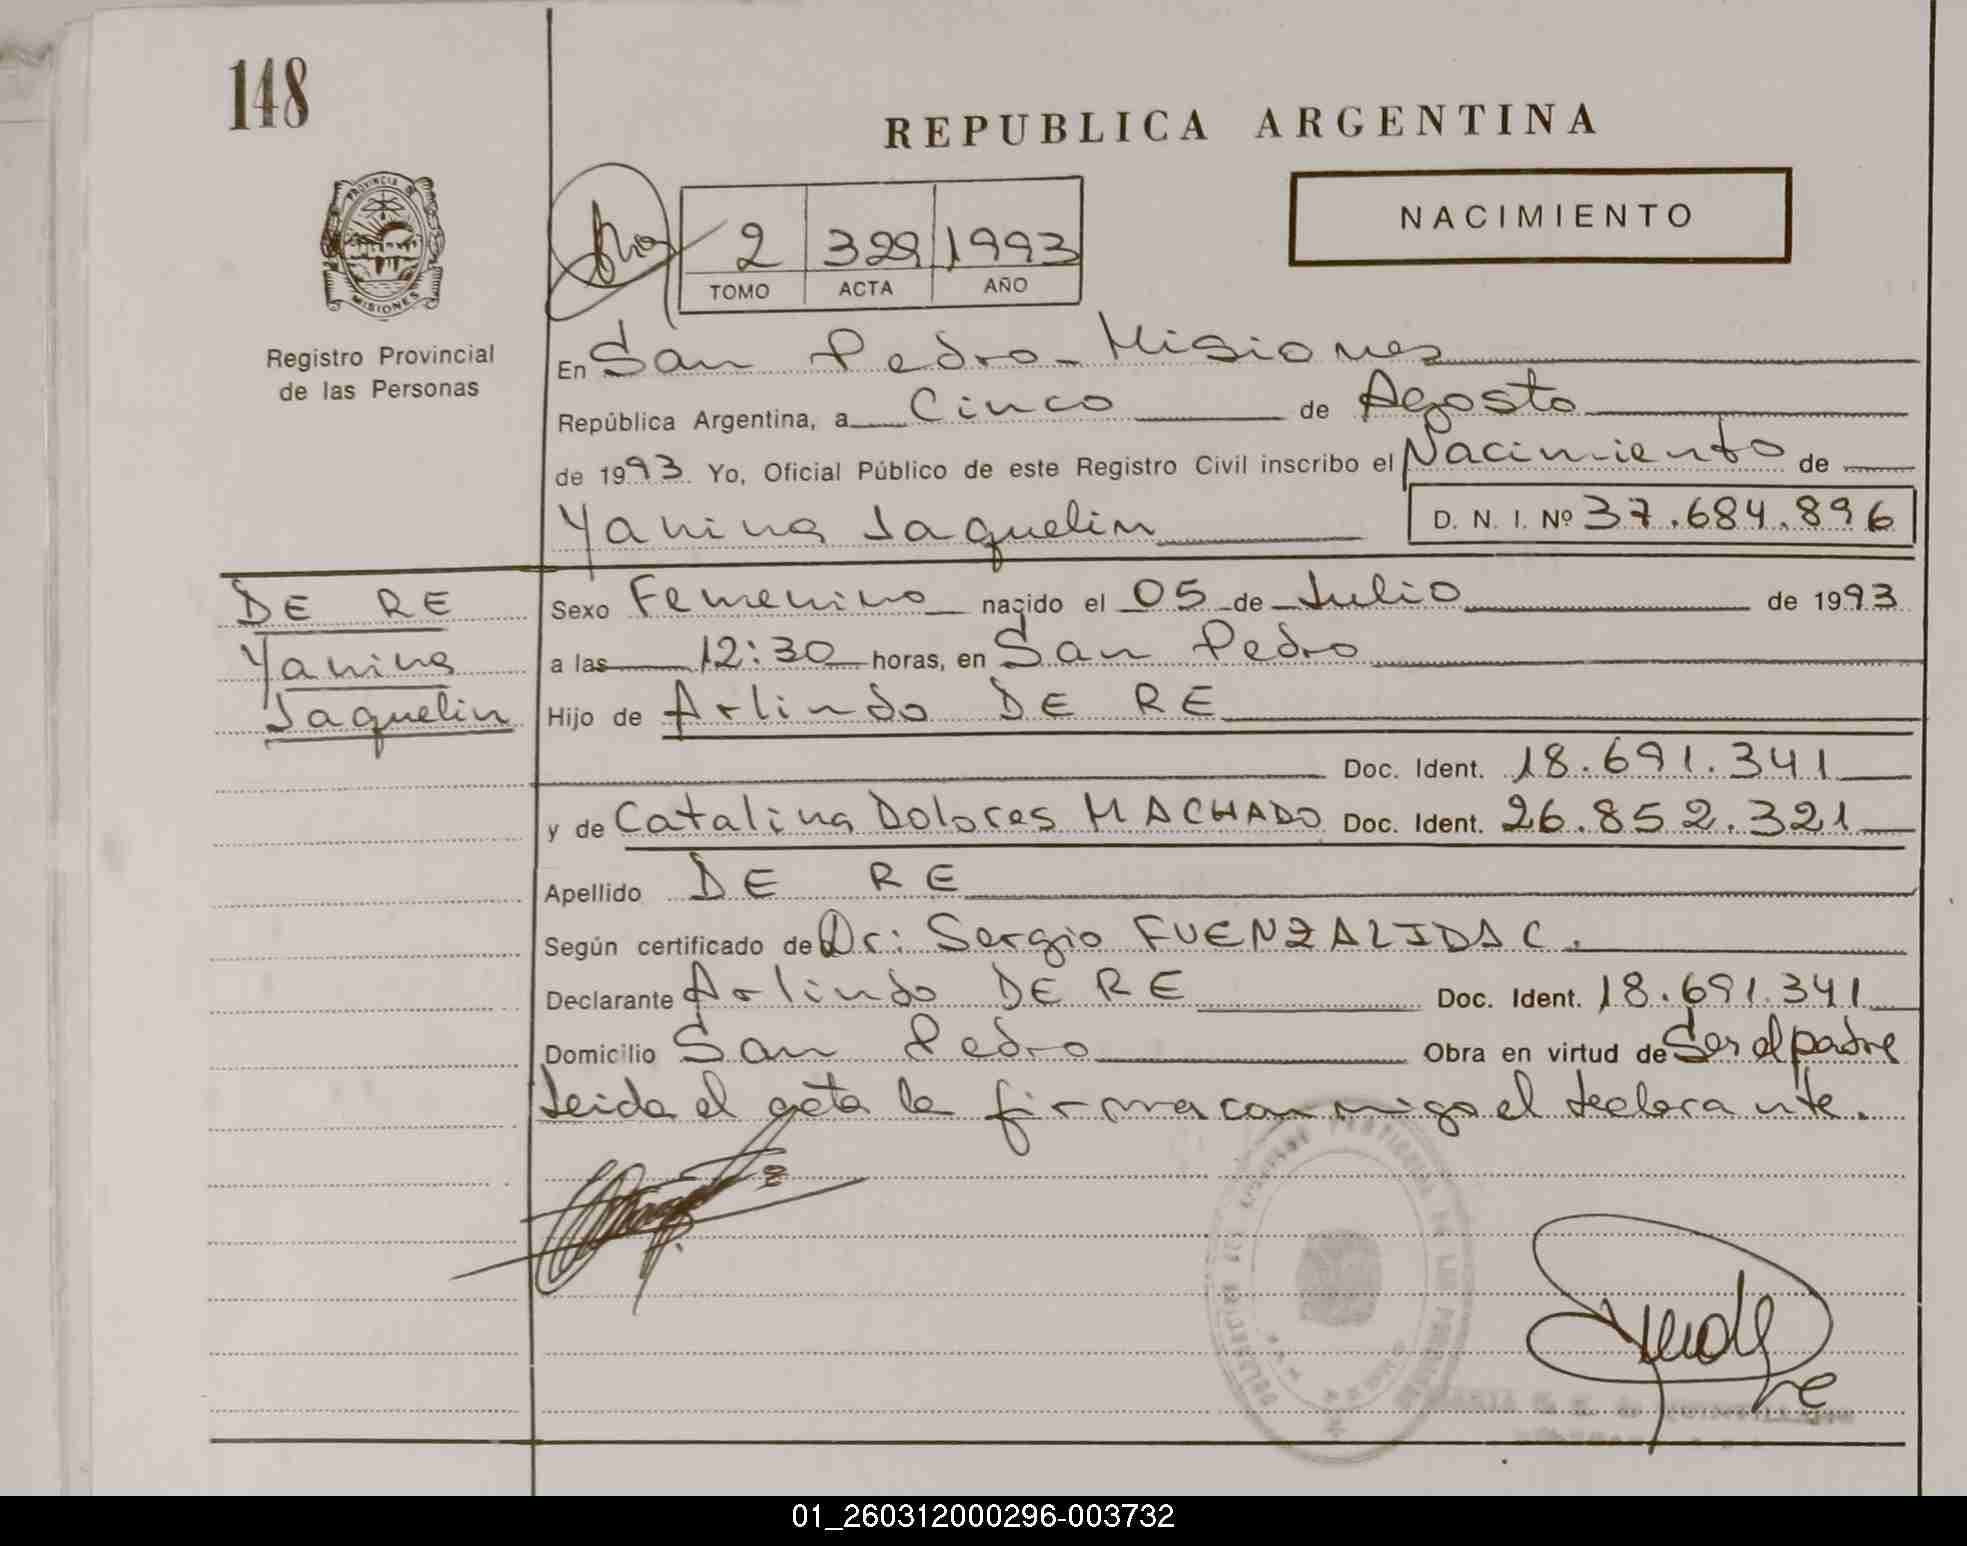 148
REPUBLICA ARGENTINA
PROVINCIA DE
MISIONES
NACIMIENTO
2 329 1993
TOMO ACTA AÑO
Registro Provincial
de las Personas
En San Pedro - Misiones
República Argentina, a Cinco de Agosto
de 1993 Yo, Oficial Público de este Registro Civil inscribo el Nacimiento de
Yanina Jaquelin D. N. I. Nº 37.684.896
DE RE
Yanina
Jaquelin
Sexo Femenino nacido el 05 de Julio de 1993
a las 12:30 horas, en San Pedro
Hijo de Arlindo DE RE
Doc. Ident. 18.691.341
y de Catalina Dolores MACHADO Doc. Ident. 26.852.321
Apellido DE RE
Según certificado de Dr: Sergio FUENZALIDA C.
Declarante Arlindo DE RE Doc. Ident. 18.691.341
Domicilio San Pedro Obra en virtud de Ser el padre
Leida el acta la firma conmigo el declarante.
01_260312000296-003732